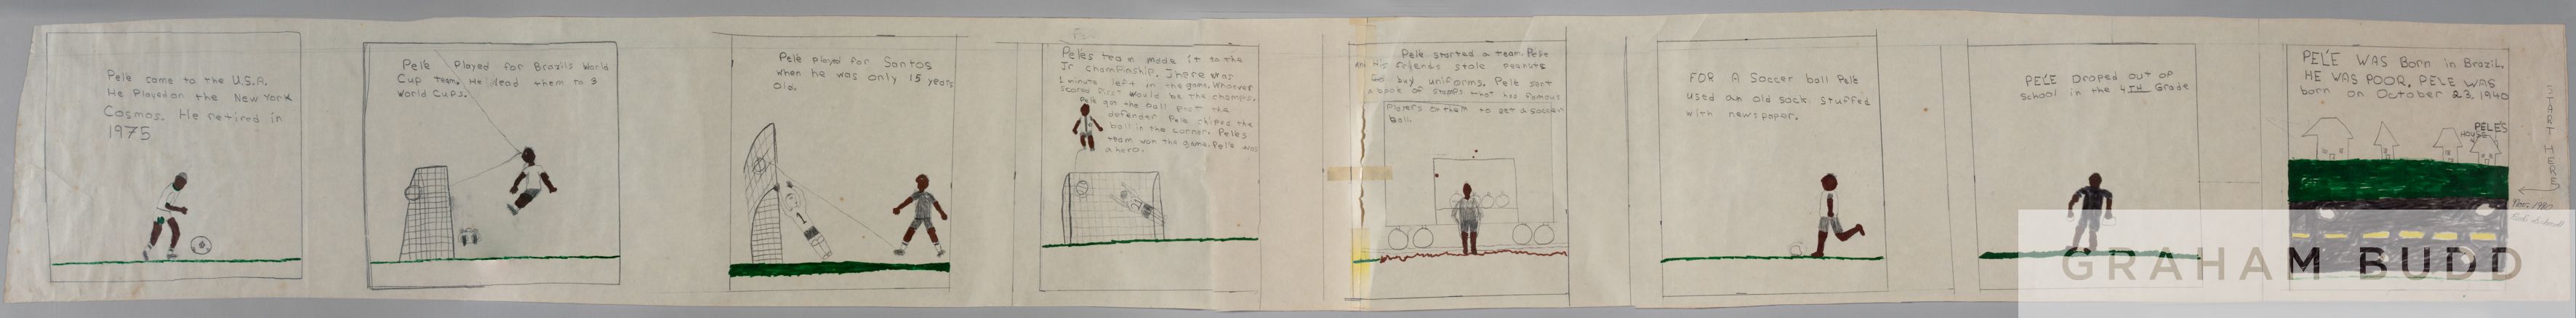 Pelé came to the U.S.A.
He Played on the New York
Cosmos. He retired in
1975
Pelé Played for Brazils World
Cup Team. He lead them to 3
World Cups.
Pelé played for Santos
when he was only 15 years
Old.
Pelés team made it to the
Jr Championship. There was
1 minute left in the game. Whoever
scored first would be the champs.
Pelé got the ball past the
defender Pelé chiped the
ball in the corner. Pelés
team won the game. Pelé was
a hero.
Pelé started a team. Pelé
and his friends stole Peanuts
buy uniforms. Pelé sort
a book of stamps that has famous
Players on them to get a soccer
ball.
FOR A Soccer ball Pelé
used an old sock stuffed
with newspaper.
PELÉ Droped out of
School in the 4TH Grade
PELÉ WAS Born in Brazil.
HE WAS POOR. PELÉ WAS
born on October 23, 1940
PELÉ'S
HOUSE
START HERE
1
GRAHAM BUDD